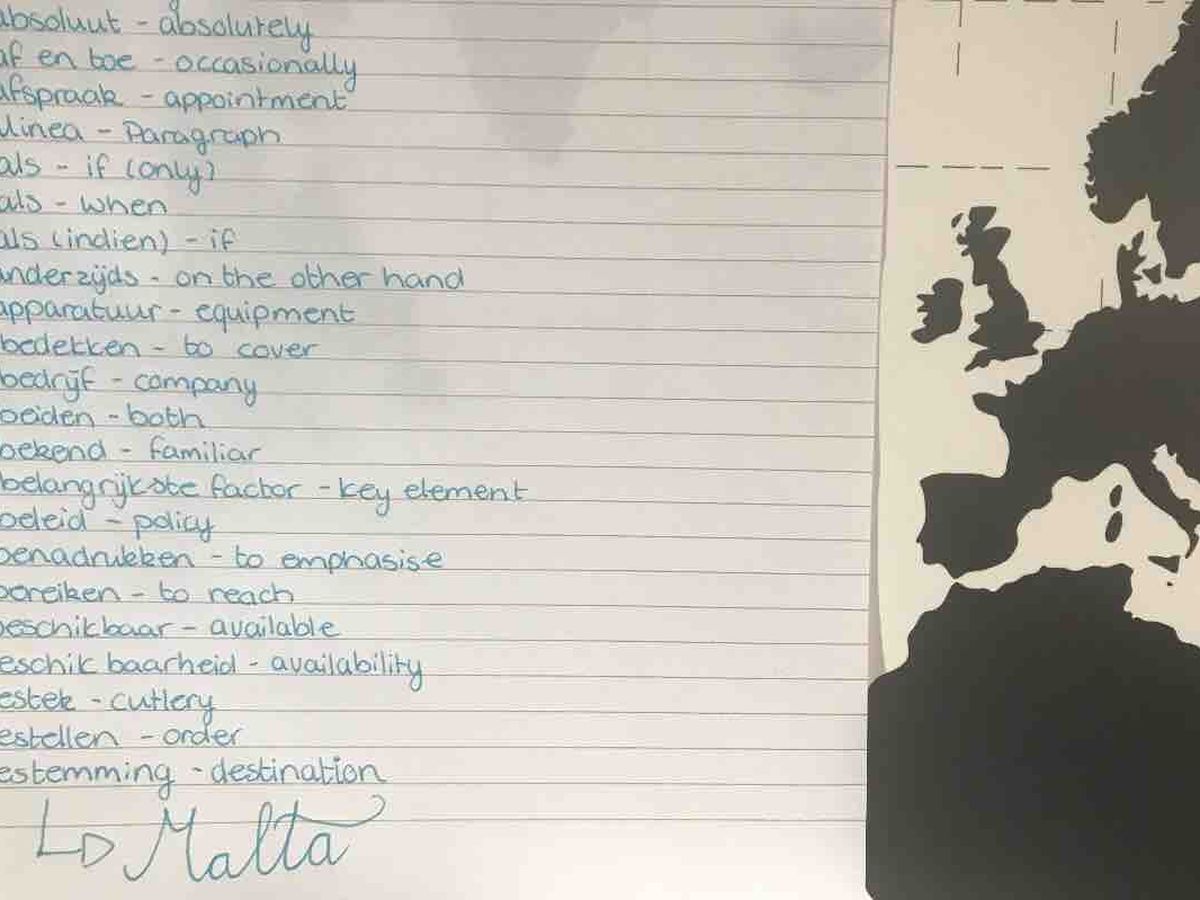 absoluut - absolutely
af en toe - occasionally
afspraak - appointment
alinea - Paragraph
als - if (only)
als - when
als (indien) - if
anderzijds - on the other hand
apparatuur - equipment
bedekken - to cover
bedrijf - company
beiden - both
bekend - familiar
belangrijkste factor - key element
beleid - policy
benadrukken - to emphasise
bereiken - to reach
beschikbaar - available
eschikbaarheid - availability
estek - cutlery
estellen - order
estemming - destination
Malta